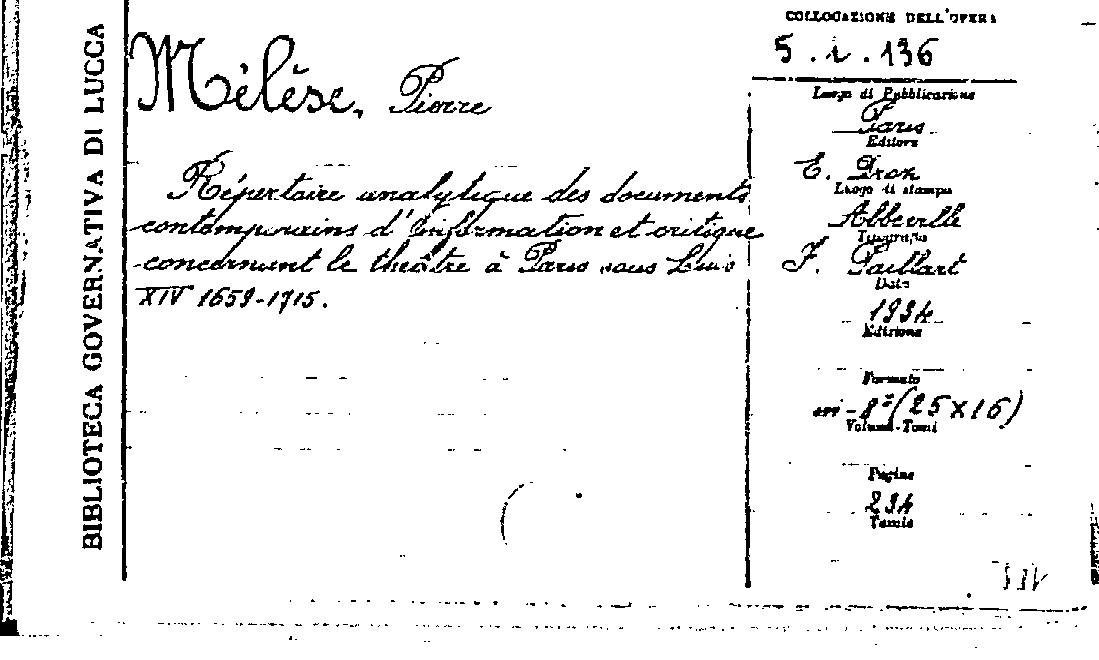 BIBLIOTECA GOVERNATIVA DI LUCCA
Mélèse, Pierre
Répertoire analytique des documents
contemporains d'information et critique
concernant le théâtre à Paris sous Louis
XIV 1659-1715.
COLLOCAZIONE DELL'OPERA
5. i. 136
Luogo di Pubblicazione
Paris
Editore
E. Droz
Luogo di stampa
Abbeville
Tipografia
F. Paillart
Data
1934
Edizione
Formato
in-8º (25x16)
Volumi-Tomi
Pagine
234
Tavole